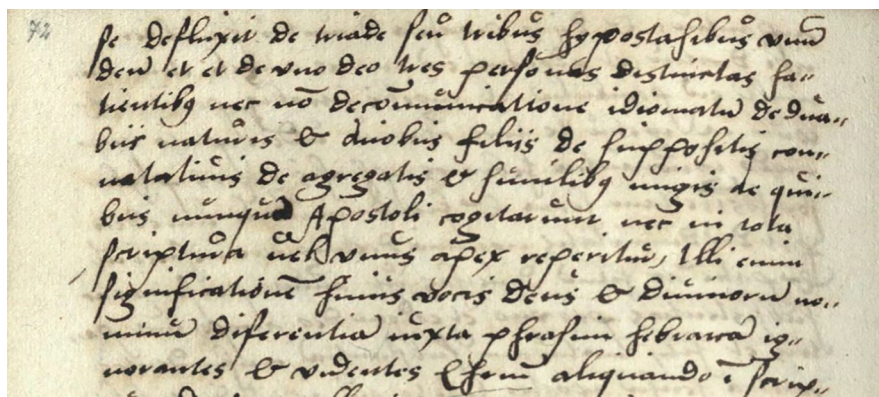 72
se defluxit de triade seu tribus hypostasibus vnū
deū et et de vno deo tres personas distinctas fa-
tientibꝫ nec nō de cōmunicatione idiomatū de dua-
bus naturis & duobus filiis de suppositis con-
notatiuis de agregatis & similibꝫ nugis de qui-
bus nunquā Apostoli cogitarunt nec in tota
scriptura uel vnus apex reperitur, Illi enim
significationē huius vocis deus & diuinorū no-
minū diferentiā iuxta phrasim hebraicā ig-
norantes & videntes Chrūm aliquando ī scrip-